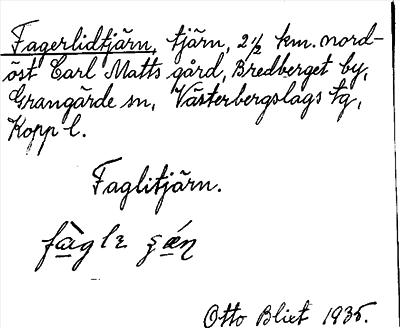 Fagerlidtjärn, tjärn, 2½ km. nord-
öst Carl Matts gård, Bredberget by,
Grangärde sn, Västerbergslags tg,
Kopp l.
Faglitjärn.
Otto Blixt 1935.